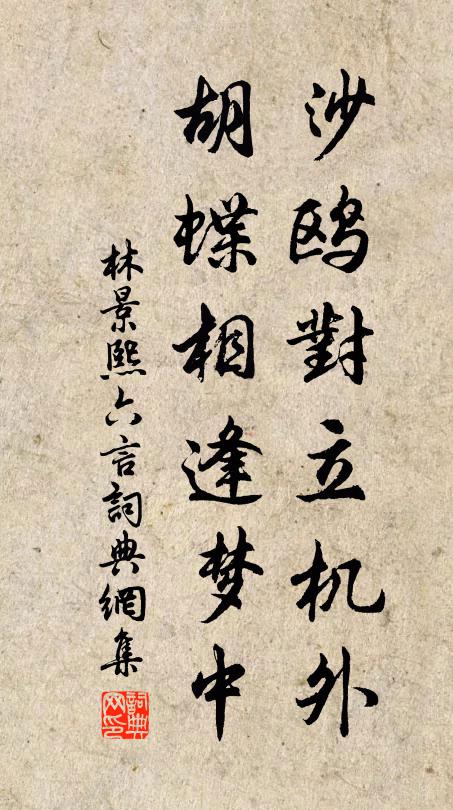 沙鸥對立机外
胡蝶相逢梦中
林景熙六言詞典網集
詞典网印